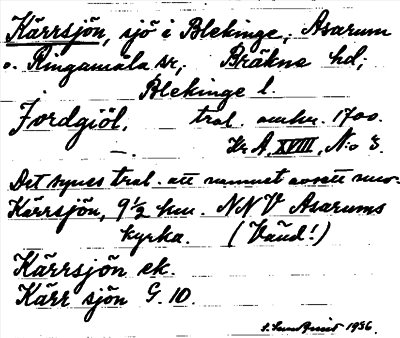 Kärrsjön, sjö i Blekinge; Asarum
o. Ringamåla sr; Bräkne hd;
Blekinge l.
Jordgiöl, tral. omkr. 1700.
Kr A, XVIII, N:o 3.
Det synes tral. att namnet avsett nuv.
Kärrsjön, 9½ km. NNV Asarums
kyrka. (Väud!)
Kärrsjön ek.
Kärr sjön G. 10.
1936.